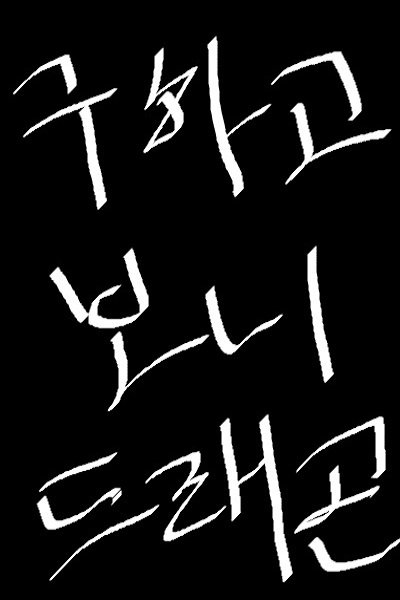 구하고
보니
드래곤